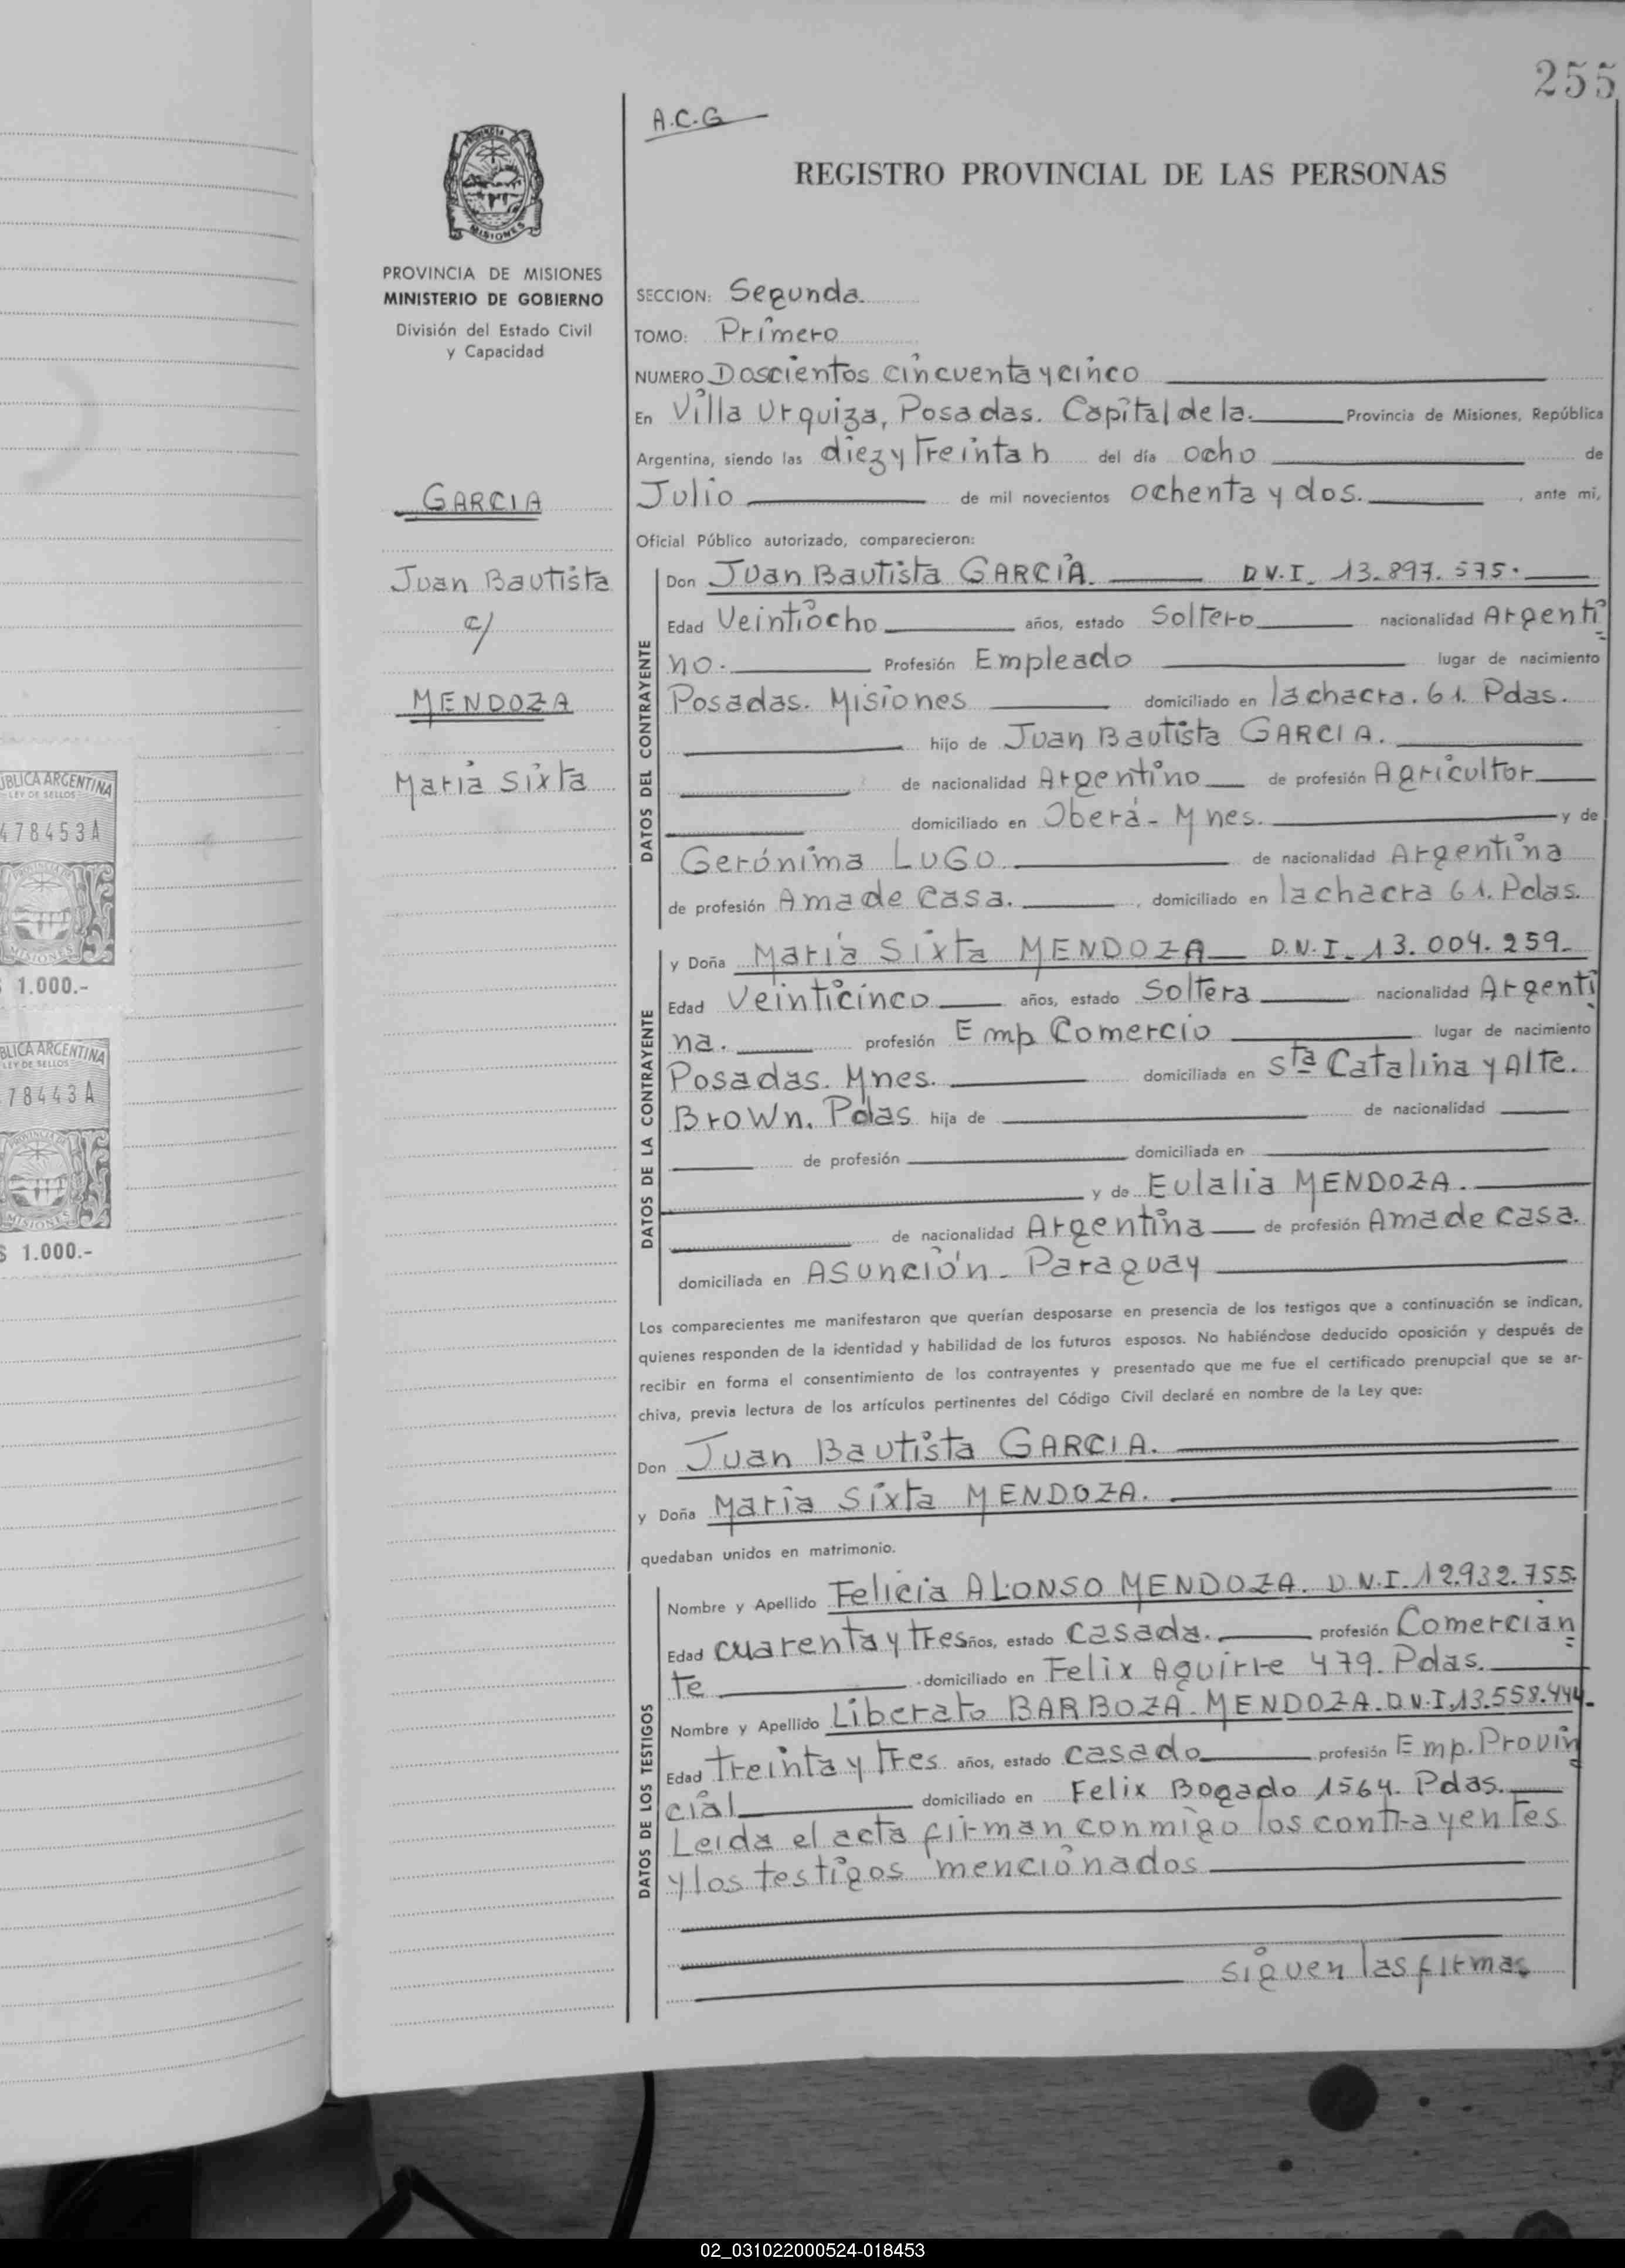 255
A.C.G
REGISTRO PROVINCIAL DE LAS PERSONAS
PROVINCIA DE MISIONES
MINISTERIO DE GOBIERNO
División del Estado Civil
y Capacidad
GARCIA
Juan Bautista
c/
MENDOZA
María Sixta
SECCION: Segunda.
TOMO: Primero
NUMERO Doscientos cincuenta y cinco
En Villa Urquiza, Posadas. Capital de la. Provincia de Misiones, República
Argentina, siendo las diez y treinta h del día ocho de
Julio de mil novecientos ochenta y dos. , ante mi,
Oficial Público autorizado, comparecieron:
DATOS DEL CONTRAYENTE
Don Juan Bautista GARCIA. D.N.I. 13.897.575.
Edad Veintiocho años, estado Soltero nacionalidad Argenti
no. Profesión Empleado lugar de nacimiento
Posadas. Misiones domiciliado en la chacra. 61. Pdas.
hijo de Juan Bautista GARCIA.
de nacionalidad Argentino de profesión Agricultor
domiciliado en Oberá - Mnes. y de
Gerónima LUGO de nacionalidad Argentina
de profesión Ama de Casa. , domiciliado en la chacra 61. Pdas.
DATOS DE LA CONTRAYENTE
y Doña María Sixta MENDOZA D.N.I. 13.004.259.
Edad Veinticinco años, estado Soltera nacionalidad Argenti
na. profesión Emp Comercio lugar de nacimiento
Posadas. Mnes. domiciliada en Sta Catalina y Alte.
Brown. Pdas hija de de nacionalidad
de profesión domiciliada en
y de Eulalia MENDOZA.
de nacionalidad Argentina de profesión Ama de casa.
domiciliada en Asunción - Paraguay
Los comparecientes me manifestaron que querían desposarse en presencia de los testigos que a continuación se indican,
quienes responden de la identidad y habilidad de los futuros esposos. No habiéndose deducido oposición y después de
recibir en forma el consentimiento de los contrayentes y presentado que me fue el certificado prenupcial que se ar-
chiva, previa lectura de los artículos pertinentes del Código Civil declaré en nombre de la Ley que:
Don Juan Bautista GARCIA.
y Doña María Sixta MENDOZA.
quedaban unidos en matrimonio.
DATOS DE LOS TESTIGOS
Nombre y Apellido Felicia ALONSO MENDOZA. D.N.I. 12.932.755.
Edad cuarenta y tres años, estado casada. profesión Comercian
te domiciliado en Felix Aguirre 479. Pdas.
Nombre y Apellido Liberato BARBOZA. MENDOZA. D.N.I. 13.558.444.
Edad treinta y tres años, estado casado profesión Emp. Provin
cial domiciliado en Felix Bogado 1564. Pdas.
Leída el acta firman conmigo los contrayentes
y los testigos mencionados
siguen las firmas
UBLICA ARGENTINA
LEY DE SELLOS
478453A
PROVINCIA DE
MISIONES
$ 1.000.-
BLICA ARGENTINA
LEY DE SELLOS
78443A
PROVINCIA DE
MISIONES
$ 1.000.-
02_031022000524-018453